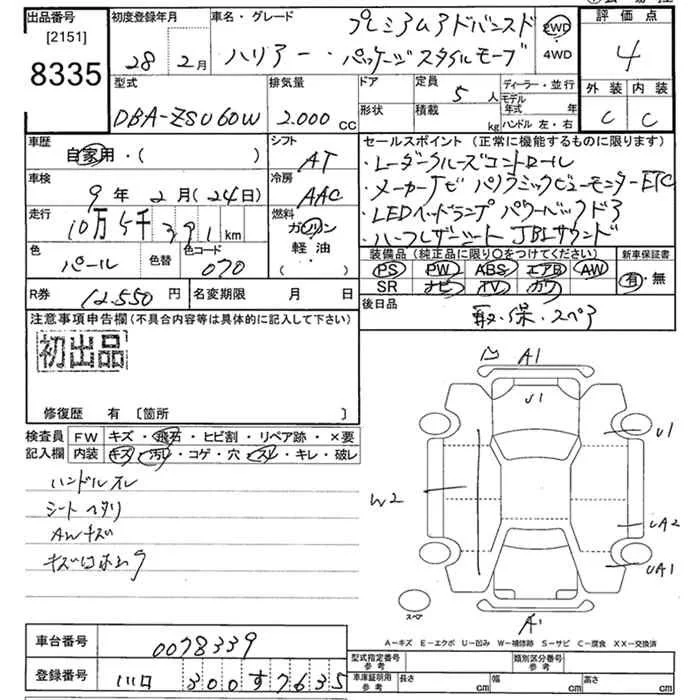 出品番号
[2151]
8335
初度登録年月
28年 2月
車名・グレード
プレミアムアドバンスド
ハリアー・パッケージスタイルモーブ
2WD
4WD
評価点
4
型式
DBA-ZSU60W
排気量
2.000 CC
ドア
形状
定員 5 人
積載 kg
ディーラー・並行
モデル年式 年
ハンドル 左・右
外装 内装
C C
車歴
自家用・( )
シフト
AT
車検
9年 2月(24日)
冷房
AAC
走行
10万 5千 391 km
燃料
ガソリン
軽油
( )
色
パール
色替
色コード
070
セールスポイント (正常に機能するものに限ります)
・レーダークルーズコントロール
・メーカーナビ パノラミックビューモニター ETC
・LEDヘッドランプ パワーバックドア
・ハーフレザーシート JBLサウンド
装備品(純正品に限り○をつけてください)
新車保証書
PS PW ABS エアB AW
SR ナビ TV カワ
有・無
R券 12.550 円
名変期限 月 日
後日品
取・保・スペア
注意事項申告欄(不具合内容等は具体的に記入して下さい)
初出品
修復歴 有 [箇所 ]
検査員
記入欄
FW キズ・飛石・ヒビ割・リペア跡・×要
内装 キズ・汚レ・コゲ・穴・スレ・キレ・破レ
ハンドルスレ
シートヘタリ
AWキズ
A1
U1
U1
W2
UA2
UA1
A1
スペア
A-キズ E-エクボ U-凹み W-補修跡 S-サビ C-腐食 XX-交換済
車台番号
0078339
登録番号
川口 300 す 7635
型式指定番号
参考
類別区分番号
参考
車庫証明用
参考
長さ cm 幅 cm 高さ cm